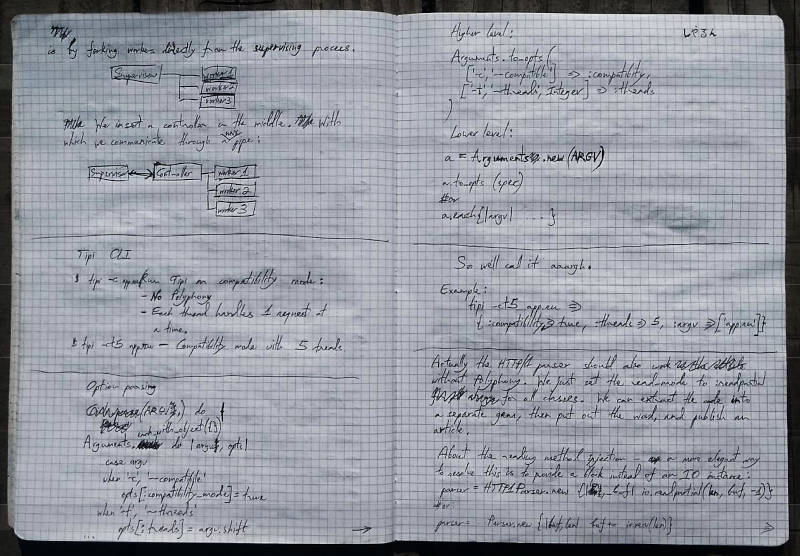 is by forking workers directly from the supervising process.
Supervisor
worker 1
worker 2
worker 3
We insert a controller in the middle. With
which we communicate through a pipe:
Supervisor
Controller
worker 1
worker 2
worker 3
Tipi CLI
$ tipi -c app.ru Run Tipi on compatibility mode:
- No Polyphony
- Each thread handles 1 request at
a time.
$ tipi -ct5 app.ru - Compatibility mode with 5 treads
Option parsing
(ARGV) do
each_with_object({})
Arguments. do |argv, opts|
case argv
when '-c', '--compatible'
opts[:compatibility_mode] = true
when '-t', '--threads'
opts[:treads] = argv.shift
Higher level:
Arguments.to_opts(
['-c', '--compatible'] => :compatibility,
['-t', '--threads', Integer] => :threads
)
Lower level:
a = Arguments.new(ARGV)
a.to_opts (spec)
#or
a.each{|argv| ... }
So we'll call it aaargh.
Example:
tipi -ct5 app.ru =>
{ :compatibility => true, :threads => 5, :argv => ['app.ru']}
Actually the HTTP/1 parser should also work
without Polyphony. We just set the readmode to :readpartial
for all classes. We can extract the code into
a separate gem, then put out the word, and publish an
article.
About the reading method injection - a more elegant way
to resolve this is to provide a block instead of an IO instance:
parser = HTTP1Parser.new { io.readpartial(len, buf, -1)}
#or
parser = Parser.new {|buf,len| buf